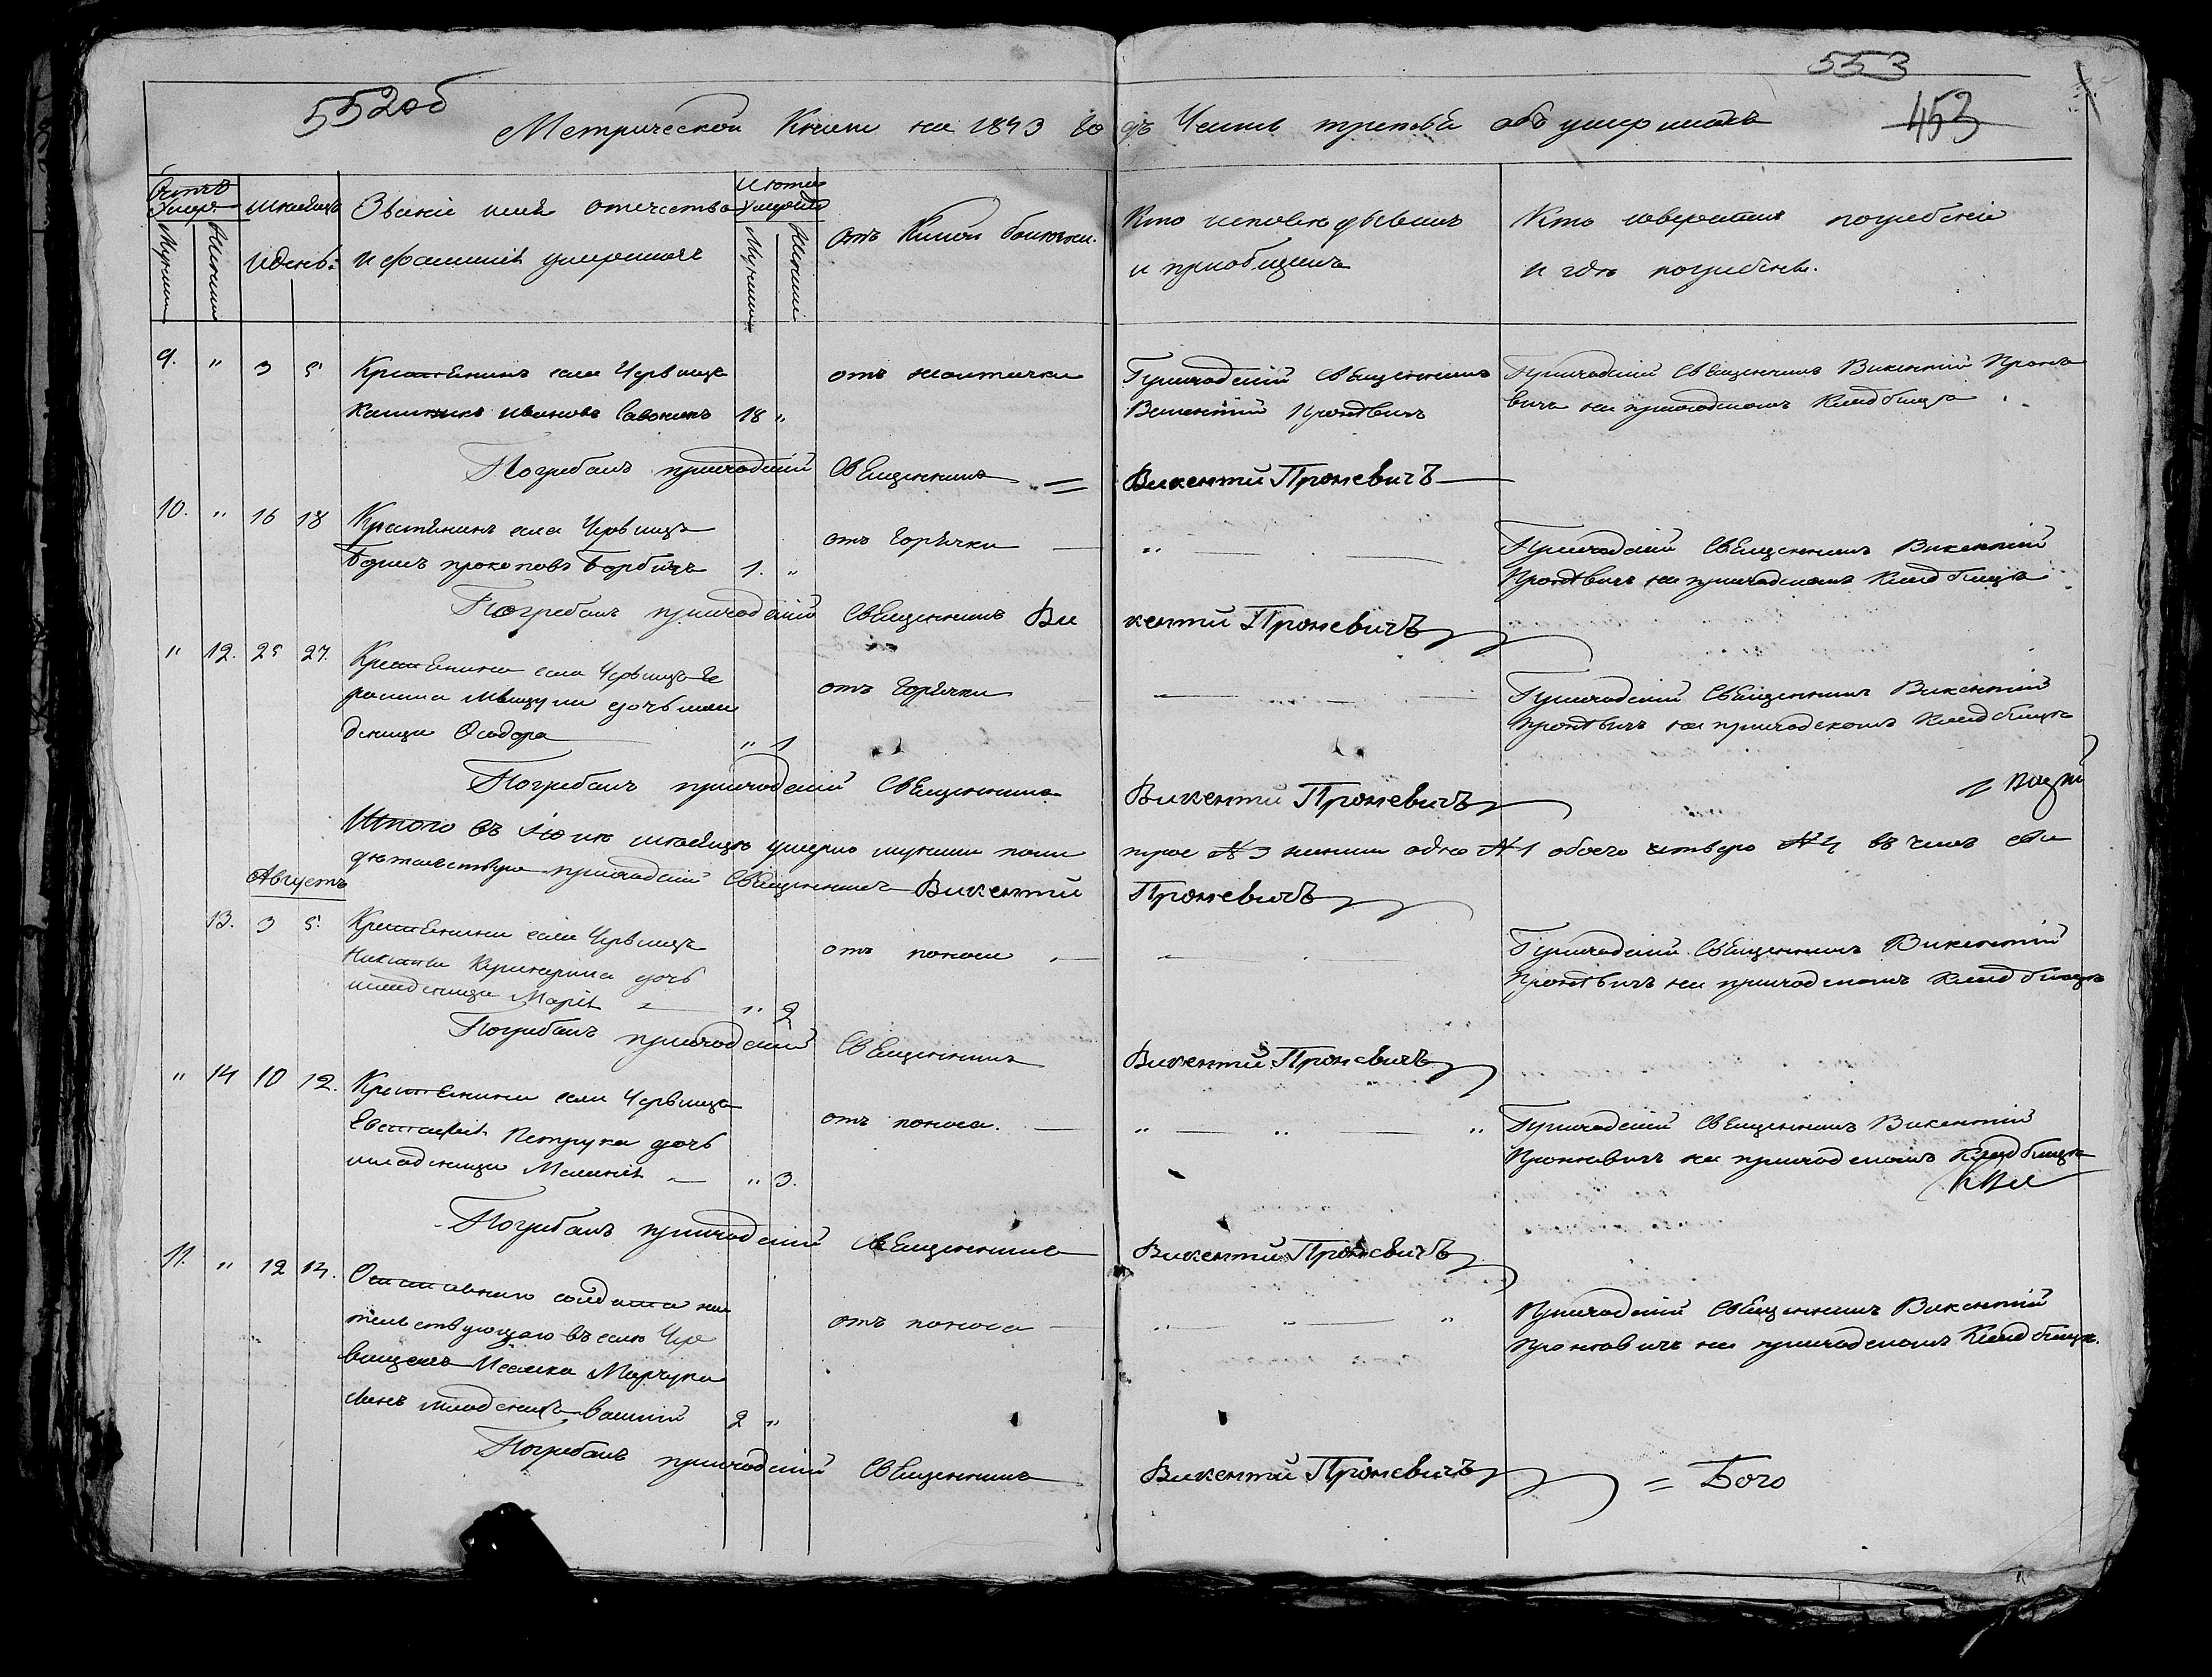 552об
553
453
Метрической Книги на 1843 годъ Часть третья объ умершихъ
Счетъ Умер. Мужеск Женск
Месяцъ и день.
Званіе имя отечество и фамилія умершихъ
Лета умершаго Мужеска Женска
Отъ Какой болезни.
Кто исповедывалъ и приобщалъ
Кто совершалъ погребеніе и где погребены.
9. " 3 5 Крестянинъ села Червища
Каленикъ Ивановъ 18 "
Приходскій Священникъ
Викентій Проневичъ
Приходскій Священникъ Викентій Проневичъ на приходскомъ кладбище
Погребалъ приходскій Священникъ = Викентий Проневичъ
10. " 16 18 Крестянинъ села Червища
прокоповъ 1. "
отъ горячки
Приходскій Священникъ Викентій
Проневичъ на приходскомъ кладбище
Погребалъ приходскій Священникъ Викентий Проневичъ
" 12. 25 27. Крестянина села Червища
дочь младеница Феодора " 1
отъ горячки
Приходскій Священникъ Викентій
Проневичъ на приходскомъ кладбище
Погребалъ приходскій Священникъ Викентий Проневичъ
Итого въ месяце умерло мужеска пола трое №3 женска одна №1 обоего четверо №4 въ чемъ свидетелствую приходскій Священникъ Викентий Проневичъ
Августъ
13. 3 5. Крестянина села Червища
дочь
младеница Марія " 2
отъ поноса
Приходскій Священникъ Викентій
Проневичъ на приходскомъ кладбище
Погребалъ приходскій Священникъ Викентий Проневичъ
" 14 10 12. Крестянина села Червища
Евстафія Петрука дочь
младеница " 3.
отъ поноса.
Приходскій Священникъ Викентій
Проневичъ на приходскомъ кладбище
Погребалъ приходскій Священникъ Викентий Проневичъ
11. " 12 14. Отставнаго солдата жительствующаго въ селе Червищахъ Марчука
сынъ младенецъ Василій 2 "
отъ поноса
Приходскій Священникъ Викентій
Проневичъ на приходскомъ кладбище.
Погребалъ приходскій Священникъ Викентий Проневичъ
= Бого